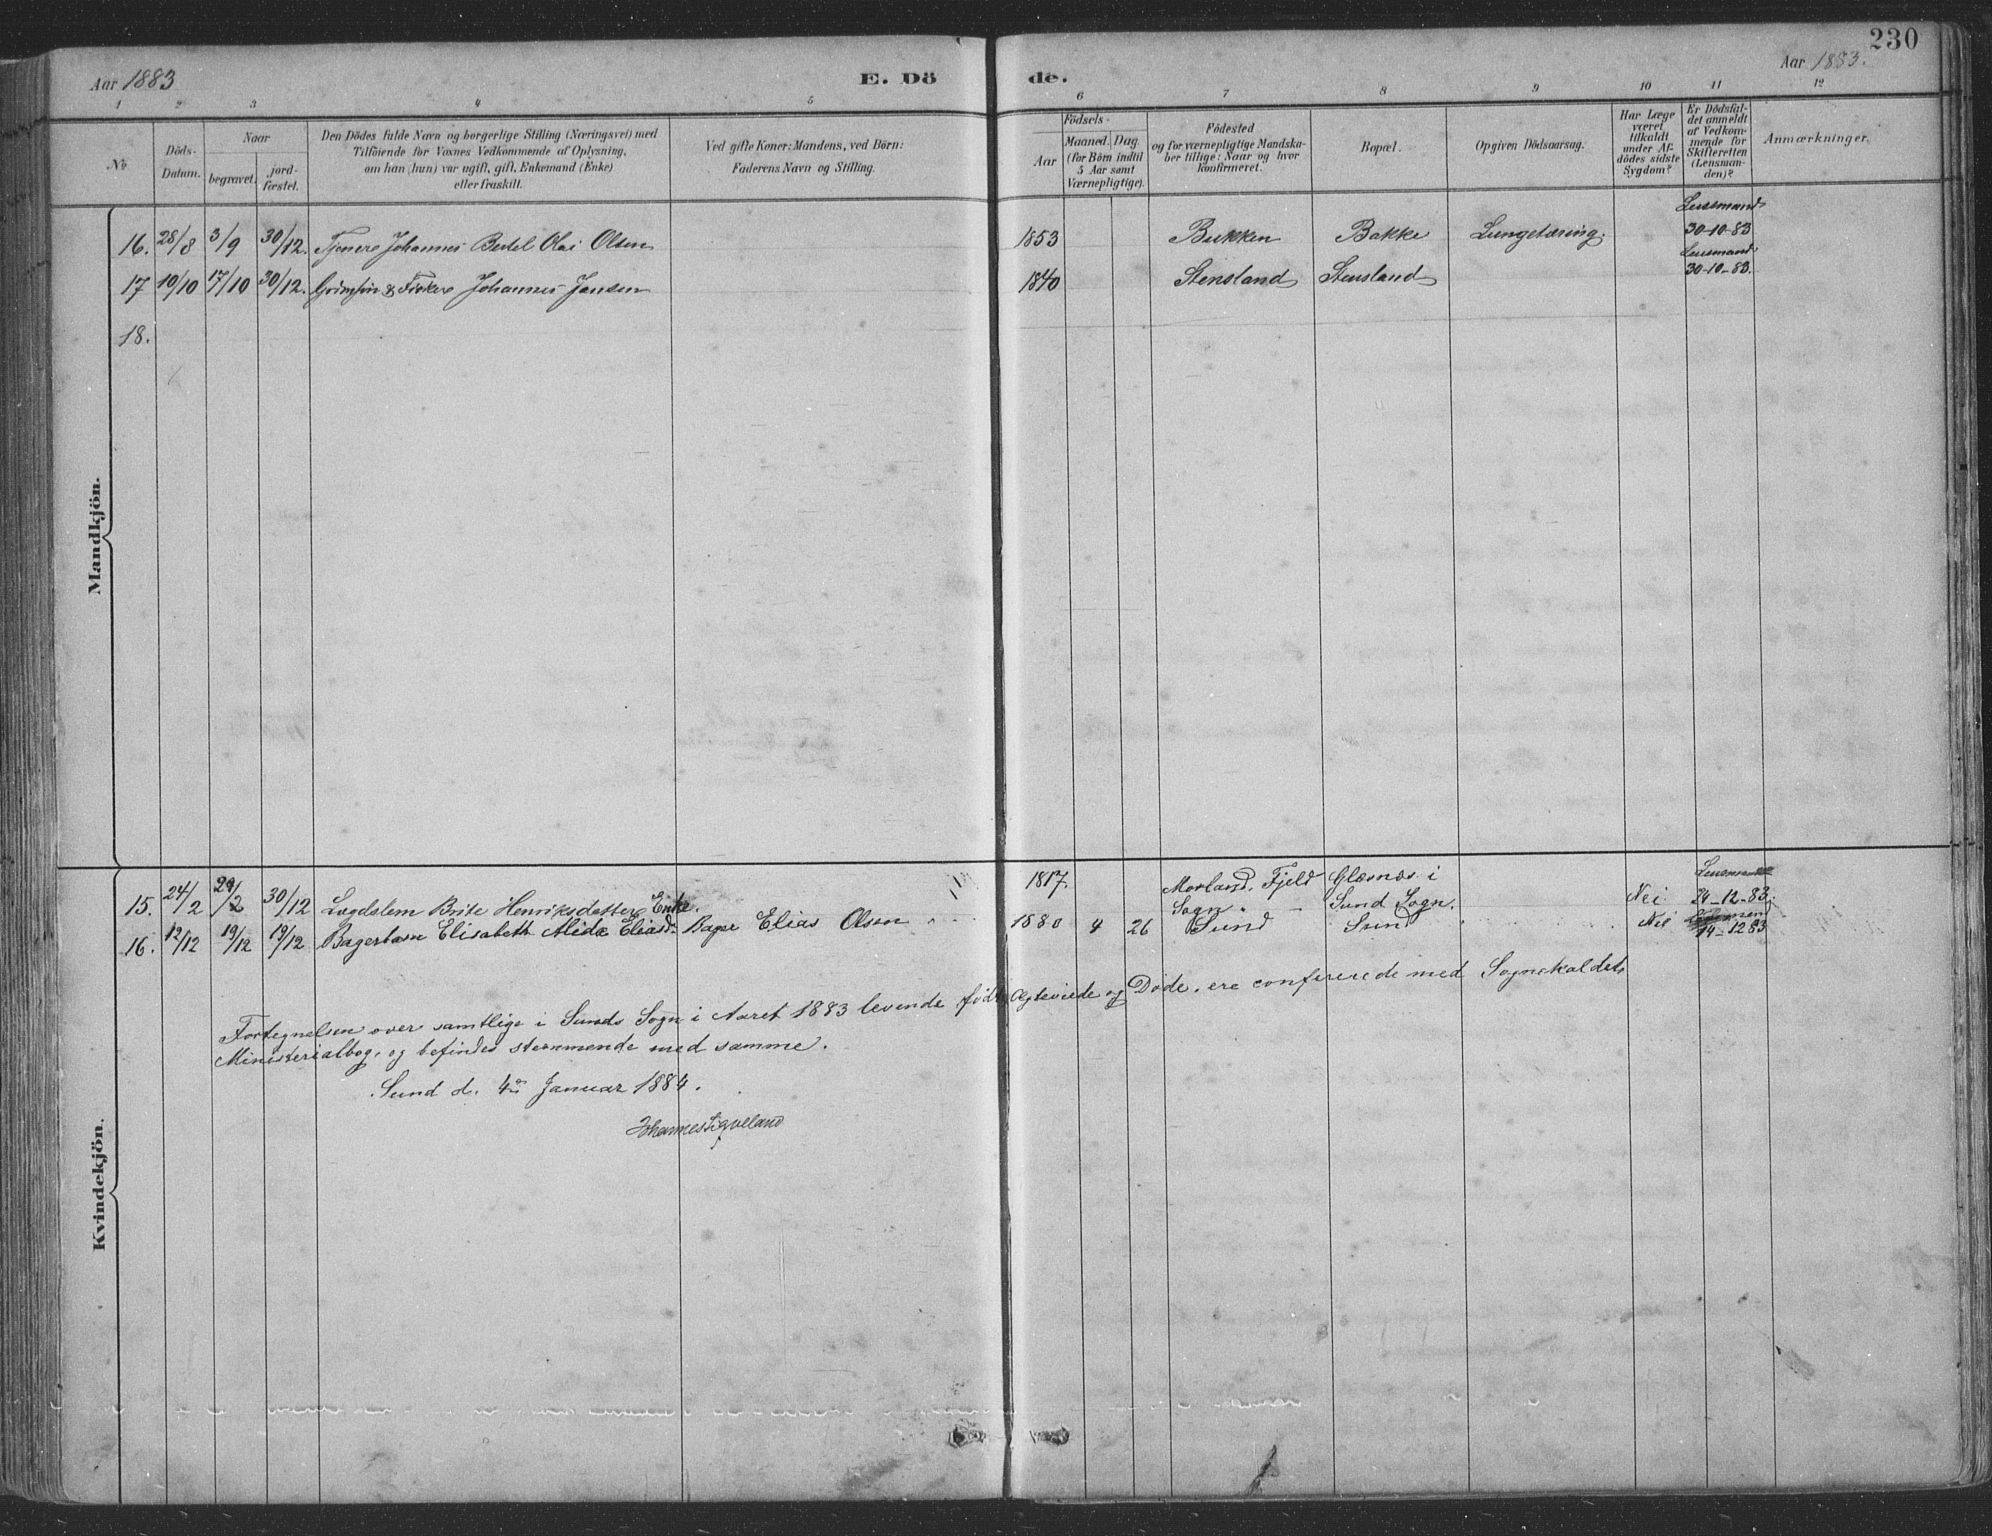 230
Aar 1883 E. Dö de. Aar 1883.
1 2 3 4 5 6 7 8 9 10 11 12
No
Döds-
Datum.
Naar
begravet.
jord-
fæstet.
Den Dödes fulde Navn og borgerlige Stilling (Næringsvei) med
Tilföiende for Voxnes Vedkommende af Oplysning,
om han (hun) var ugift, gift, Enkemand (Enke)
eller fraskilt.
Ved gifte Koner: Mandens, ved Börn:
Faderens Navn og Stilling.
Födsels-
Aar
Maaned. Dag.
(for Börn indtil
5 Aar samt
Værnepligtige).
Födested
og for værnepligtige Mandska-
ber tillige: Naar og hvor
konfirmeret.
Bopæl.
Opgiven Dödsaarsag.
Har Læge
været
tilkaldt
under Af-
dödes sidste
Sygdom?
Er Dödsfal-
det anmeldt
af Vedkom-
mende for
Skifteretten
(Lensman-
den)?
Anmærkninger.
Mandkjön.
16. 28/8 3/9 30/12. Tjener Johannes Bertel Olai Olsen 1853 Bukken Bakke Lungetæring. Lensmand 30-10-83
17 10/10 17/10 30/12. Johannes Jansen 1840 Stensland Stensland Lensmand 30-10-83.
18.
Kvindekjön.
15. 24/2 /2 30/12 Lægdslem Brite Henriksdatter Enke. 1817. Morland, Fjeld Glæsnæs i 
Sogn Sund Sogn. Nei 24-12-83.
16. 12/12 19/12 19/12 Bagerbarn Elisabeth Alida Eliasd. Bager Elias Olsen 1880 4 26 Sund Sund Nei 14-12 83
Fortegnelsen over samtlige i Sunds Sogn i Aaret 1883 levende födte, Ægteviede og Döde, ere confererede med Sognekaldets
Ministerialbog, og befindes stemmende med samme.
Sund d. 4de Januar 1884.
Johannes Sigveland